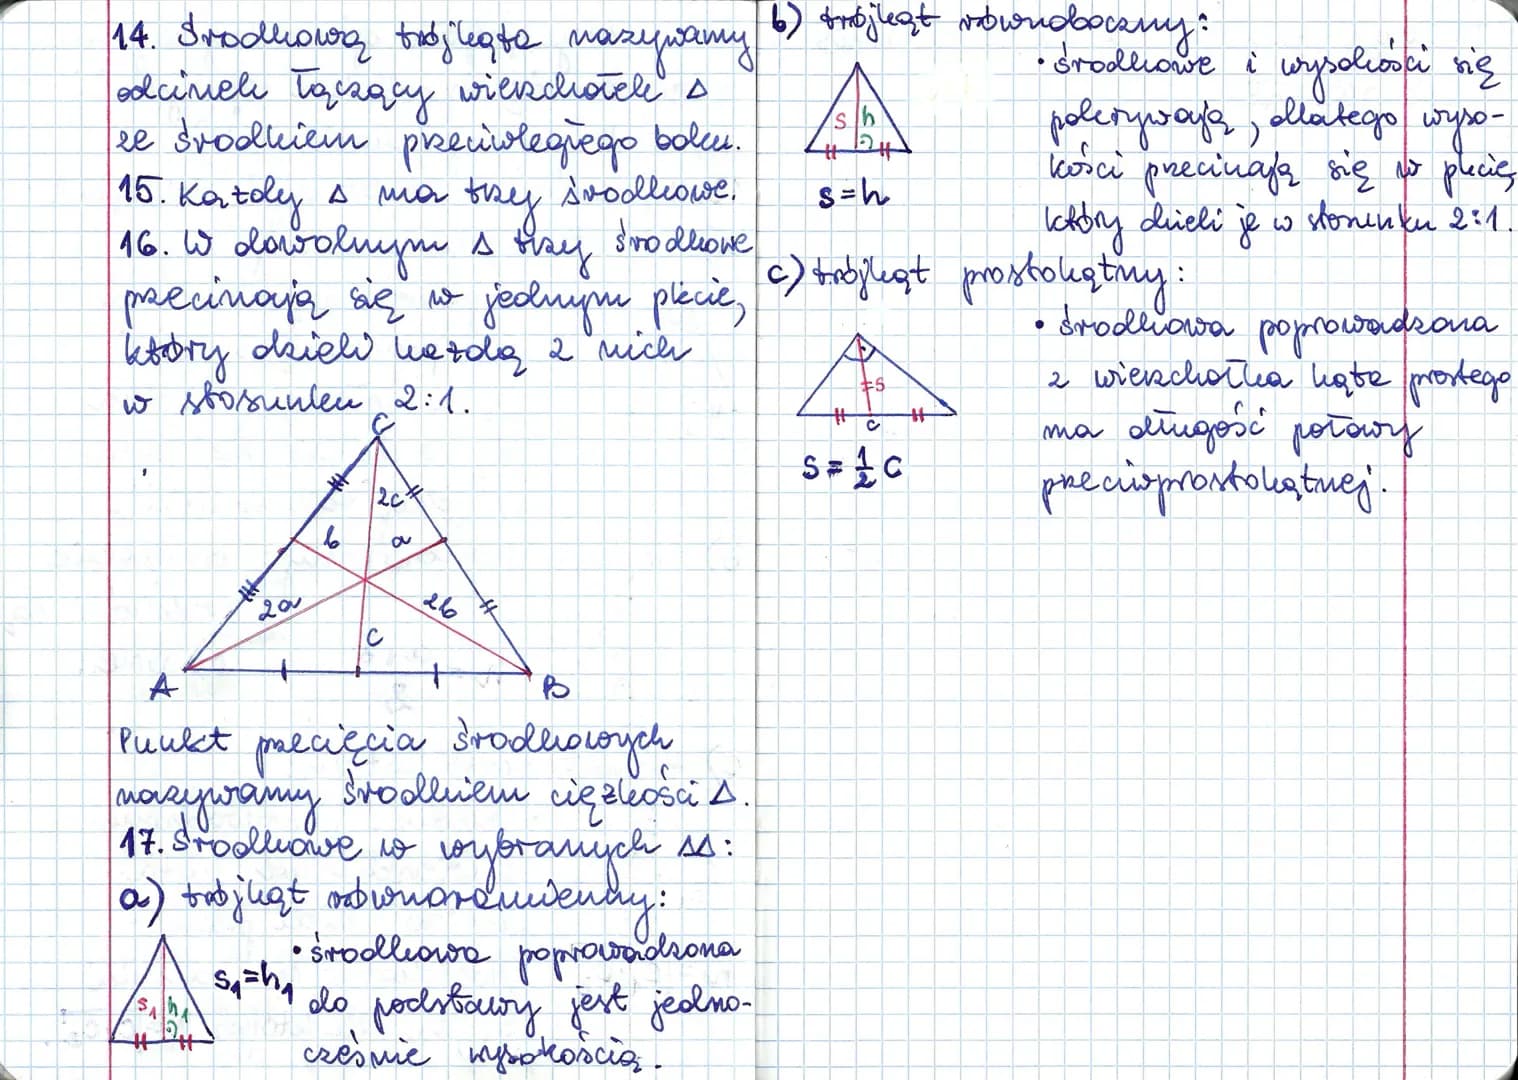 14. Środkową trójkąta nazywamy
odcinek łączący wierzchołek Δ
ze środkiem przeciwległego boku.
15. Każdy Δ ma trzy środkowe.
16. W dowolnym Δ trzy środkowe
przecinają się w jednym pkcie,
który dzieli każdą z nich
w stosunku 2:1.
C
2c
b a
2a 2b
c
A B
Punkt przecięcia środkowych
nazywamy środkiem ciężkości Δ.
17. Środkowe w wybranych ΔΔ:
a) trójkąt równoramienny:
• środkowa poprowadzona
s₁=h₁
do podstawy jest jedno-
s₁ h₁
cześnie wysokością.
b) trójkąt równoboczny:
• środkowe i wysokości się
pokrywają, dlatego wyso-
s h
kości przecinają się w pkcie,
s=h
który dzieli je w stosunku 2:1.
c) trójkąt prostokątny:
• środkowa poprowadzona
z wierzchołka kąta prostego
s
c
ma długość połowy
s = 1/2 c
przeciwprostokątnej.